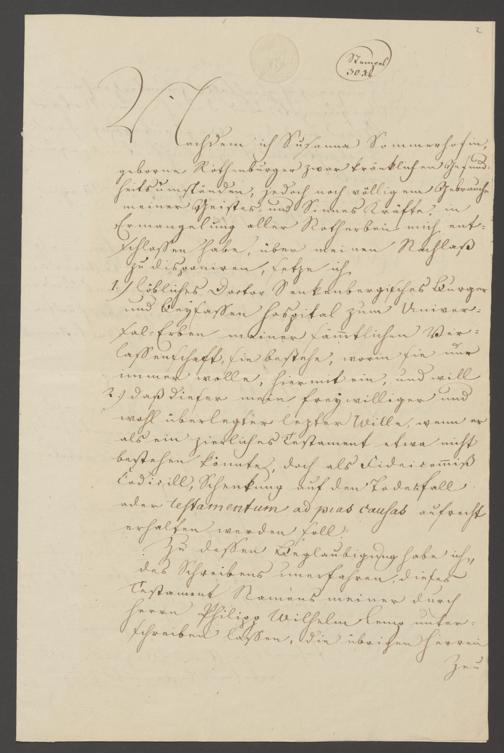 2
Stempel
30 Xr
Nachdem ich Susanna Sommerhofin,
geborne Rothenburger zwar kränklichen Gesund-
heitsumständen, jedoch noch völligem Gebrauche
meiner Geistes- und Sinnes Kräfte, in
Ermangelung aller Notherben mich ent-
schlossen habe, über meinen Nachlaß
zu disponiren, setze ich
1.) Löbliches Doctor Senkenbergisches Burger
und Beysassen Hospital zum Univer-
sal-Erben meiner sämtlichen Ver-
lassenschaft, sie bestehe, worin sie nur
immer wolle, hiermit ein, und will
2.) daß dieser mein freywilliger und
wohl überlegter lezter Wille, wenn er
als ein zierliches Testament etwa nicht
bestehen könnte, doch als Fideicommiß
Codicill, Schenkung auf den Todesfall
oder testamentum ad pias causas aufrecht
erhalten werden soll.
Zu dessen Beglaubigung habe ich,
des Schreibens unerfahren, dieses
Testament Namens meiner durch
Herrn Philipp Wilhelm unter-
schreiben lassen, die übrigen Herren
Zeu